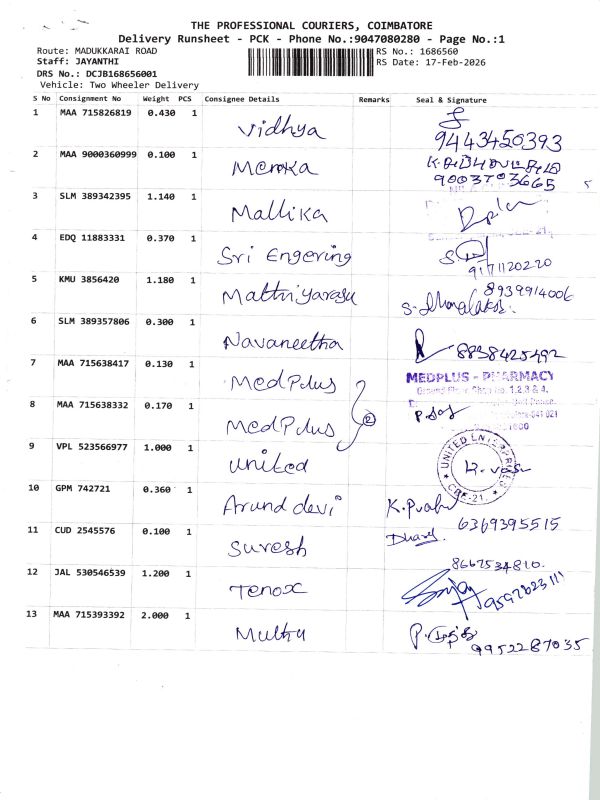 THE PROFESSIONAL COURIERS, COIMBATORE
Delivery Runsheet - PCK - Phone No.:9047080280 - Page No.:1
Route: MADUKKARAI ROAD
RS No.: 1686560
Staff: JAYANTHI
RS Date: 17-Feb-2026
DRS No.: DCJB168656001
Vehicle: Two Wheeler Delivery
S No Consignment No Weight PCS Consignee Details Remarks Seal & Signature
1 MAA 715826819 0.430 1 Vidhya
9443450393
2 MAA 9000360999 0.100 1 Menaka
9003703665
3 SLM 389342395 1.140 1 Mallika
4 EDQ 11883331 0.370 1 Sri Engering
9171120220
5 KMU 3856420 1.180 1 Mathiyarasu
8939914006
6 SLM 389357806 0.300 1 Navaneetha
8838425492
7 MAA 715638417 0.130 1 MedPlus
MEDPLUS - PHARMACY
8 MAA 715638332 0.170 1 MedPlus
2
9 VPL 523566977 1.000 1 United
UNITED ENTERPRISES
CBE-21
10 GPM 742721 0.360 1 Arundevi
6369395515
11 CUD 2545576 0.100 1 Suresh
8667534810.
12 JAL 530546539 1.200 1 Tenox
9597623111
13 MAA 715393392 2.000 1 Muthu
9952287035